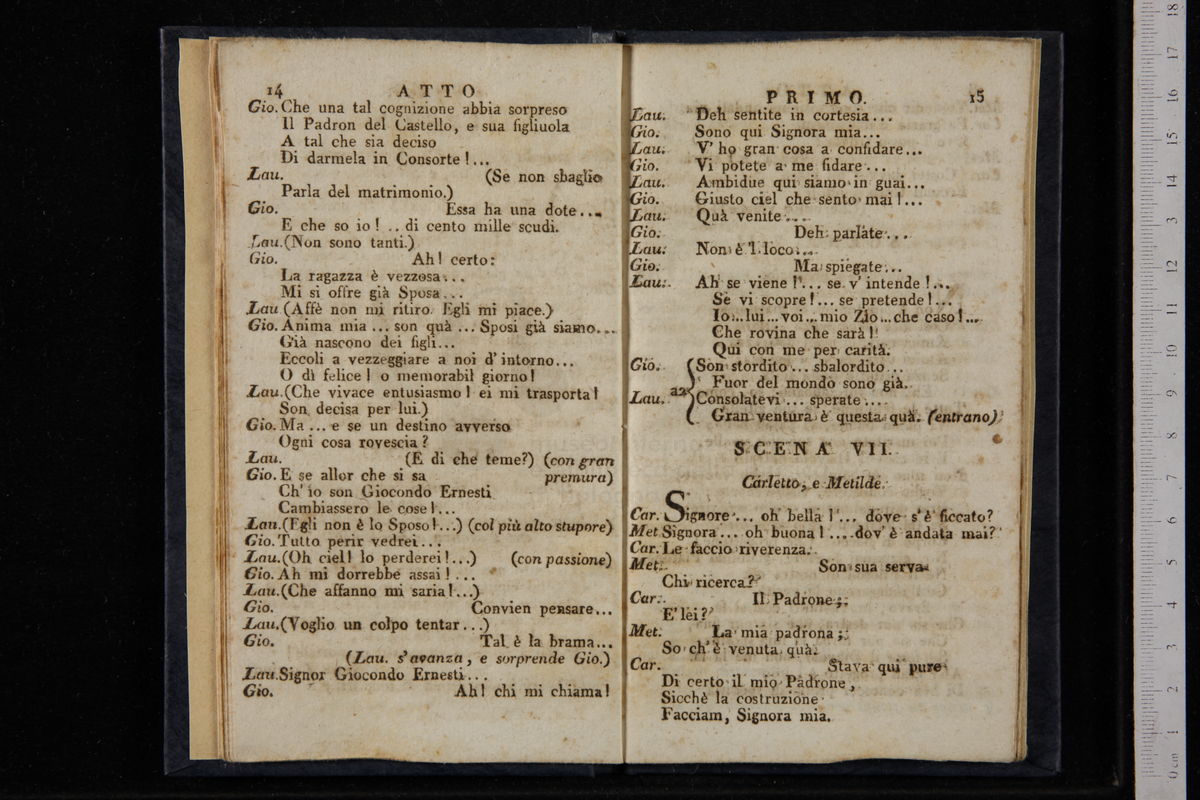 14 ATTO
Gio. Che una tal cognizione abbia sorpreso
Il Padron del Castello, e sua figliuola
A tal che sia deciso
Di darmela in Consorte!...
Lau. (Se non sbaglio
Parla del matrimonio.)
Gio. Essa ha una dote...
E che so io! .. di cento mille scudi.
Lau. (Non sono tanti.)
Gio. Ah! certo:
La ragazza è vezzosa...
Mi si offre già Sposa...
Lau (Affè non mi ritiro. Egli mi piace.)
Gio. Anima mia ... son quà ... Sposi già siamo...
Già nascono dei figli...
Eccoli a vezzeggiare a noi d'intorno...
O dì felice! o memorabil giorno!
Lau. (Che vivace entusiasmo! ei mi trasporta!
Son decisa per lui.)
Gio. Ma ... e se un destino avverso
Ogni cosa rovescia?
Lau. (E di che teme?) (con gran
Gio. E se allor che si sa premura)
Ch'io son Giocondo Ernesti
Cambiassero le cose!...
Lau. (Egli non è lo Sposo!...) (col più alto stupore)
Gio. Tutto perir vedrei...
Lau. (Oh ciel! lo perderei!...) (con passione)
Gio. Ah mi dorrebbe assai!...
Lau. (Che affanno mi saria!...)
Gio. Convien pensare...
Lau. (Voglio un colpo tentar...)
Gio. Tal è la brama...
(Lau. s'avanza, e sorprende Gio.)
Lau. Signor Giocondo Ernesti...
Gio. Ah! chi mi chiama!
PRIMO. 15
Lau. Deh sentite in cortesia...
Gio. Sono qui Signora mia...
Lau. V'ho gran cosa a confidare...
Gio. Vi potete a me fidare...
Lau. Ambidue qui siamo in guai...
Gio. Giusto ciel che sento mai!...
Lau. Quà venite...
Gio. Deh parlate...
Lau. Non è 'l loco...
Gio. Ma spiegate...
Lau. Ah se viene!... se v'intende!...
Se vi scopre!... se pretende!...
Io...lui...voi...mio Zio...che caso!...
Che rovina che sarà!
Qui con me per carità.
Gio. Son stordito... sbalordito...
Fuor del mondo sono già.
Lau. a2 Consolatevi... sperate...
Gran ventura è questa quà. (entrano)
SCENA VII.
Carletto, e Metilde.
Car. Signore... oh bella!... dove s'è ficcato?
Met. Signora... oh buona!....dov'è andata mai?
Car. Le faccio riverenza.
Met. Son sua serva
Chi ricerca?
Car. Il Padrone;
E' lei?
Met. La mia padrona;
So ch'è venuta quà.
Car. Stava qui pure
Di certo il mio Padrone,
Sicchè la costruzione
Facciam, Signora mia.